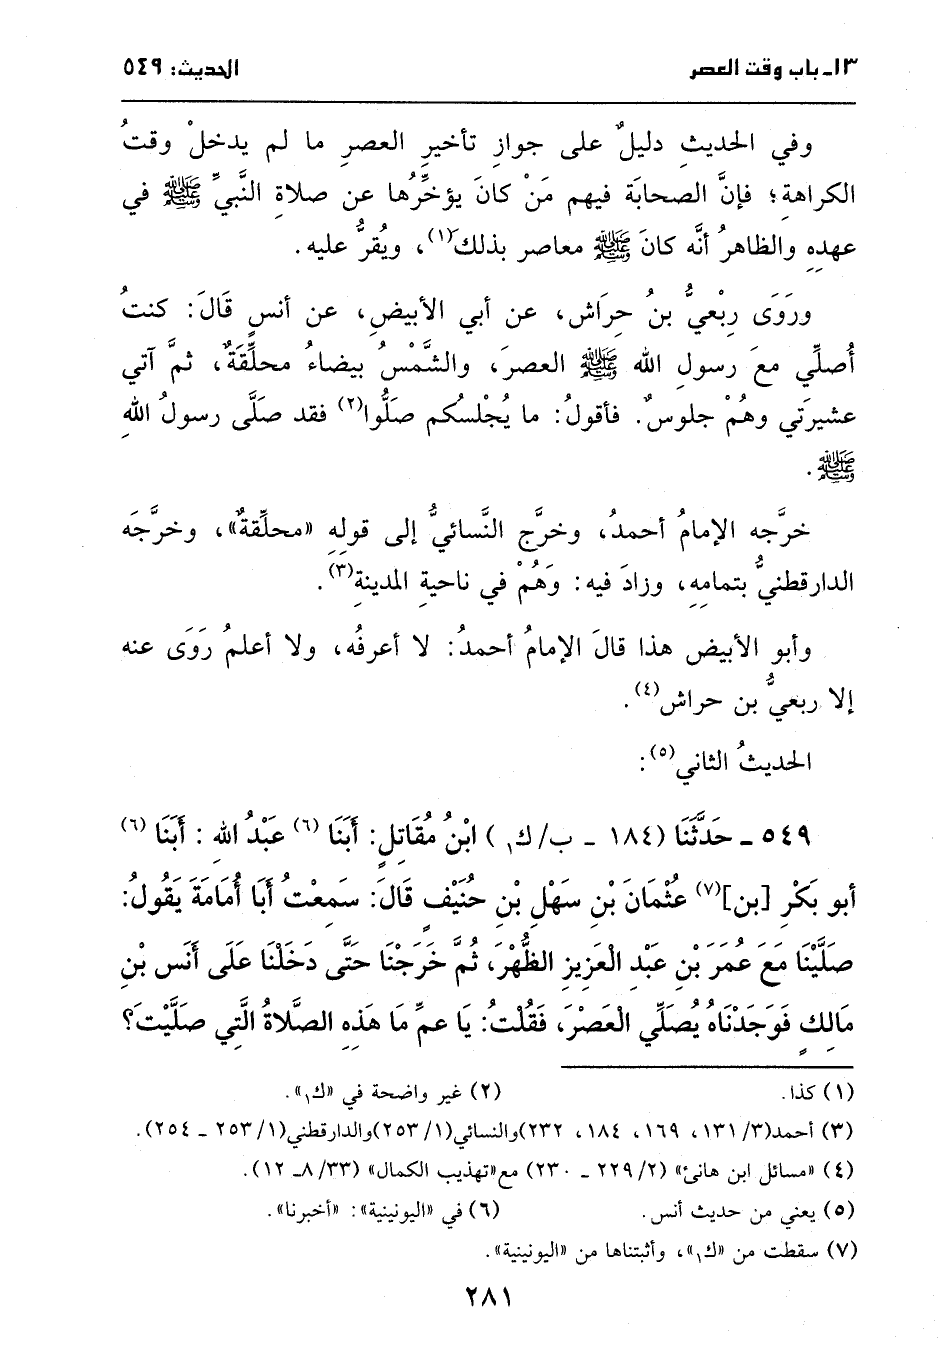 ١٣ـ باب وقت العصر الحديث: ٥٤٩
وفي الحديثِ دليلٌ على جوازِ تأخيرِ العصرِ ما لم يدخلْ وقتُ
الكراهةِ؛ فإنَّ الصحابَة فيهم مَنْ كانَ يؤخِّرُها عن صلاةِ النَّبيِّ ﷺ في
عهدِهِ والظاهرُ أنَّه كانَ ﷺ معاصر بذلكَ(١)، ويُقرُّ عليه.
ورَوَى رِبْعيُّ بنُ حِرَاش، عن أبي الأبيضِ، عن أنسٍ قَالَ: كنتُ
أُصلِّي معَ رسولِ الله ﷺ العصرَ، والشَّمْسُ بيضاءُ محلِّقَةٌ، ثمَّ آتي
عشيرَتي وهُمْ جلوسٌ. فأقولُ: ما يُجْلسُكم صَلُّوا(٢) فقد صلَّى رسولُ اللهِ
ﷺ.
خرَّجه الإمامُ أحمدُ، وخرَّج النَّسائيُّ إلى قولِهِ «محلِّقةٌ»، وخرَّجَه
الدارقطنيُّ بتمامِهِ، وزادَ فيه: وَهُمْ في ناحيةِ المدينةِ(٣).
وأبو الأبيض هذا قالَ الإمامُ أحمدُ: لا أعرفُه، ولا أعلمُ رَوَى عنه
إلا ربعيُّ بن حراش(٤).
الحديثُ الثاني(٥):
٥٤٩ ـ حَدَّثَنَا (١٨٤ ـ ب/ ك١) ابْنُ مُقَاتِلٍ: أَبَنَا (٦) عَبْدُ الله : أَبَنَا (٦)
أبو بَكْرِ [بن](٧) عُثْمَانَ بْنِ سَهْلِ بْنِ حُنَيْفٍ قَالَ: سَمِعْتُ أَبَا أُمَامَةَ يَقُولُ:
صَلَّيْنَا مَعَ عُمَرَ بْنِ عَبْدِ الْعَزِيزِ الظُّهْرَ، ثُمَّ خَرَجْنَا حَتَّى دَخَلْنَا عَلَى أَنَسِ بْنِ
مَالِكٍ فَوَجَدْنَاهُ يُصَلِّي الْعَصْرَ، فَقُلْتُ: يَا عمِّ مَا هَذِهِ الصَّلاةُ الَّتِي صَلَّيْتَ؟
(١) كذا. (٢) غير واضحة في «ك١».
(٣) أحمد(٣/ ١٣١، ١٦٩، ١٨٤، ٢٣٢)والنسائي(١/ ٢٥٣)والدارقطني(١/ ٢٥٣ ـ ٢٥٤).
(٤) «مسائل ابن هانئ» (٢/ ٢٢٩ ـ ٢٣٠) مع«تهذيب الكمال» (٣٣/ ٨ـ ١٢).
(٥) يعني من حديث أنس. (٦) في «اليونينية»: «أخبرنا».
(٧) سقطت من «ك١»، وأثبتناها من «اليونينية».
٢٨١